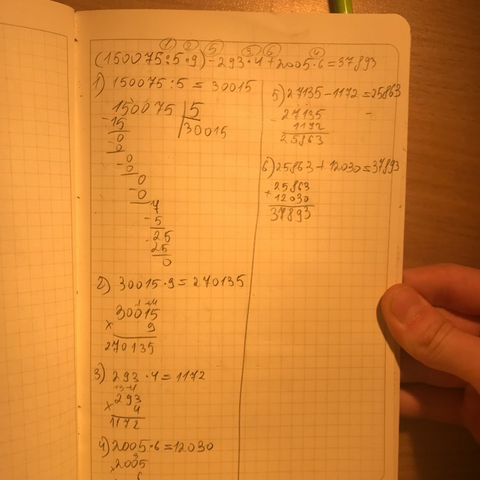 1 2 5 3 6 4
(150075:5·9)-293·4+2005·6=37893
1) 150075:5=30015
150075 5
-15 30015
0
-0
0
-0
0
-0
0
7
-5
-25
25
0
2) 30015·9=270135
30015
× 9
270135
3) 293·4=1172
293
× 4
1172
4) 2005·6=12030
×2005
6
5) 27135-1172=25863
- 27135
1172
25863
6) 25863+12030=37893
+ 25863
12030
37893